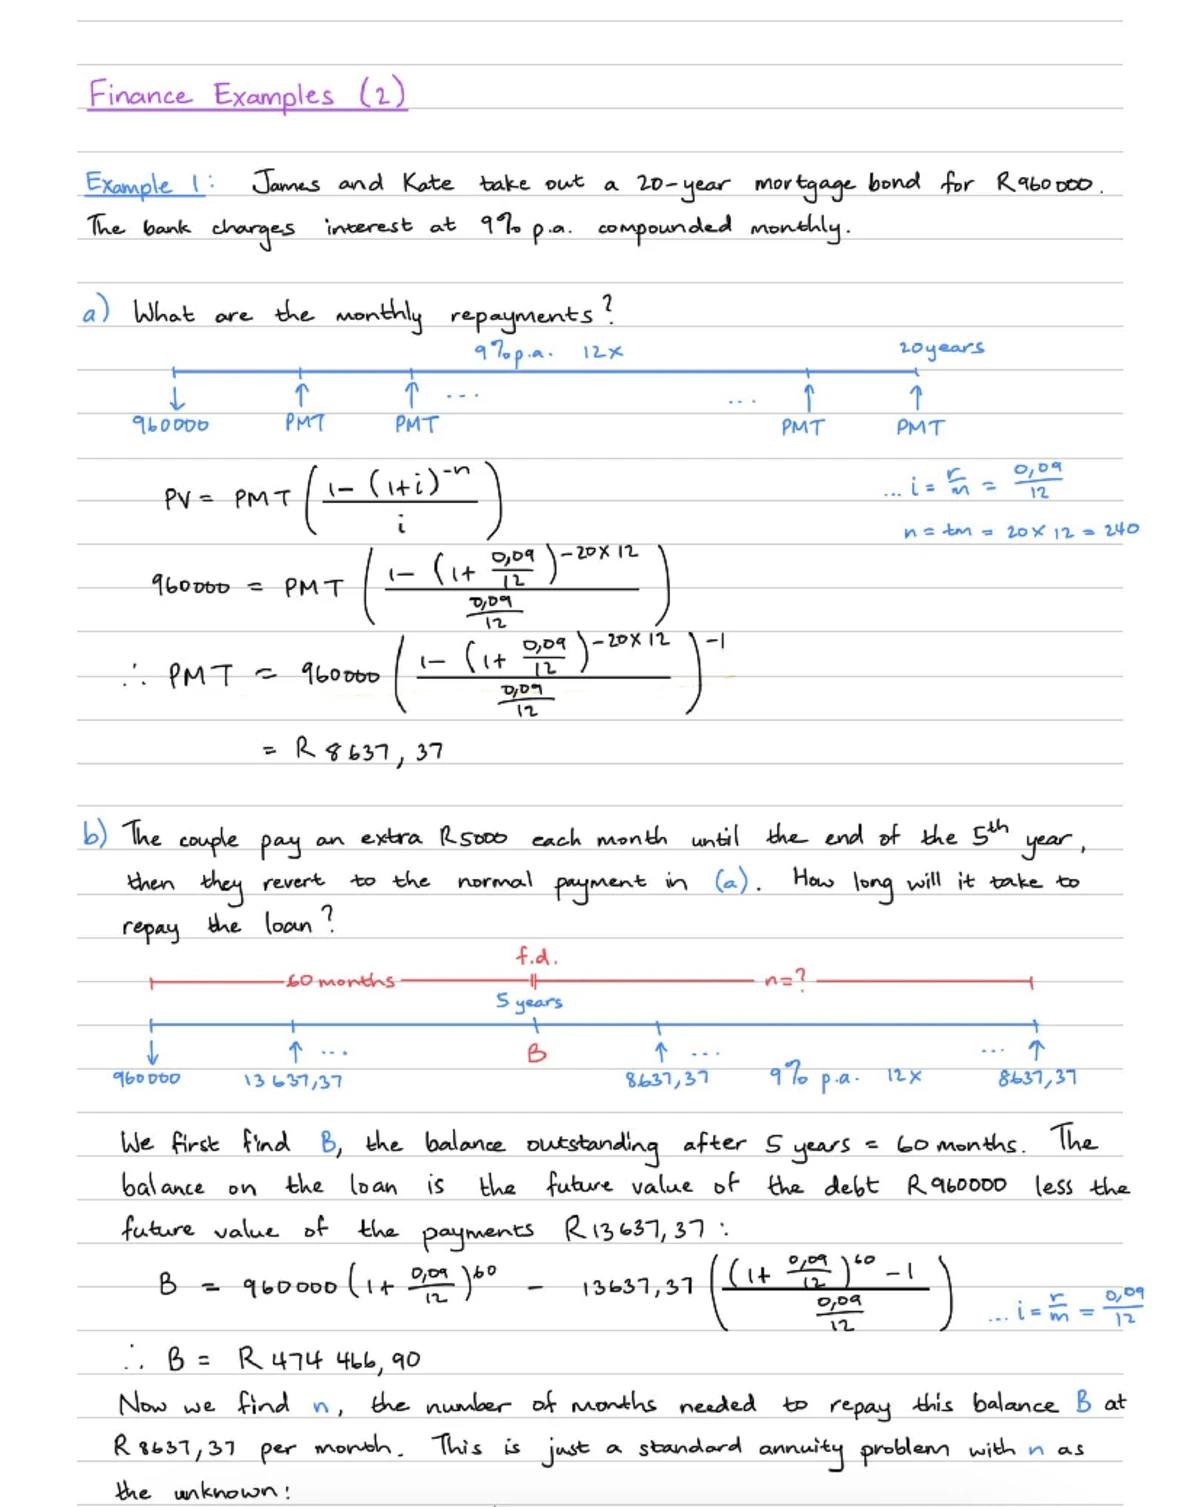 Finance Examples (2)
Example 1: James and Kate take out a 20-year mortgage bond for R960000.
The bank charges interest at 9% p.a. compounded monthly.
a) What are the monthly repayments?
9% p.a. 12x 20years
960000 PMT PMT ... ... PMT PMT
PV = PMT ( (1-(1+i)^-n) / i ) ... i = r/m = 0,09/12
n = tm = 20 x 12 = 240
960000 = PMT ( (1-(1+0,09/12)^-20x12) / (0,09/12) )
∴ PMT = 960000 ( (1-(1+0,09/12)^-20x12) / (0,09/12) )^-1
= R 8637,37
b) The couple pay an extra R5000 each month until the end of the 5th year,
then they revert to the normal payment in (a). How long will it take to
repay the loan?
f.d.
60 months n=?
5 years
... B ... ...
960000 13637,37 8637,37 9% p.a. 12x 8637,37
We first find B, the balance outstanding after 5 years = 60 months. The
balance on the loan is the future value of the debt R960000 less the
future value of the payments R13637,37:
B = 960000 (1+0,09/12)^60 - 13637,37 ( ((1+0,09/12)^60 -1) / (0,09/12) ) ... i = r/m = 0,09/12
∴ B = R 474 466,90
Now we find n, the number of months needed to repay this balance B at
R8637,37 per month. This is just a standard annuity problem with n as
the unknown: